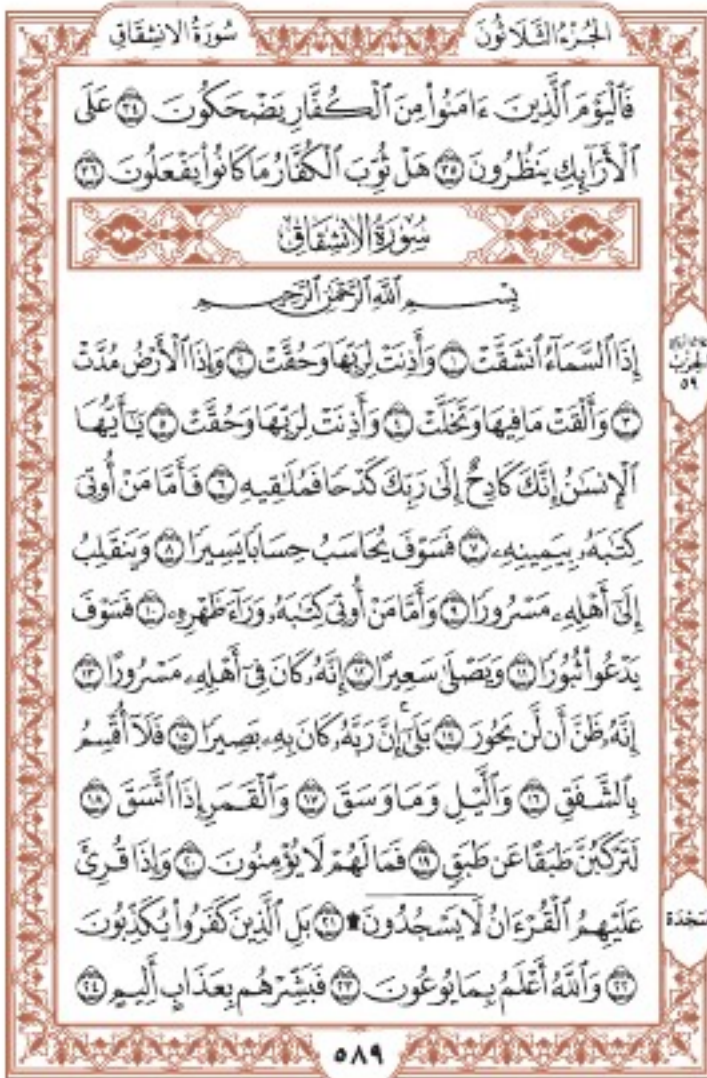 الجُزْءُ الثَّلَاثُونَ
سُورَةُ الانشِقَاقِ
فَٱلْيَوْمَ ٱلَّذِينَ ءَامَنُوا۟ مِنَ ٱلْكُفَّارِ يَضْحَكُونَ ٣٤ عَلَى
ٱلْأَرَآئِكِ يَنظُرُونَ ٣٥ هَلْ ثُوِّبَ ٱلْكُفَّارُ مَا كَانُوا۟ يَفْعَلُونَ ٣٦
سُورَةُ الانشِقَاقِ
بِسْمِ ٱللَّهِ ٱلرَّحْمَٰنِ ٱلرَّحِيمِ
إِذَا ٱلسَّمَآءُ ٱنشَقَّتْ ١ وَأَذِنَتْ لِرَبِّهَا وَحُقَّتْ ٢ وَإِذَا ٱلْأَرْضُ مُدَّتْ
٣ وَأَلْقَتْ مَا فِيهَا وَتَخَلَّتْ ٤ وَأَذِنَتْ لِرَبِّهَا وَحُقَّتْ ٥ يَـٰٓأَيُّهَا
ٱلْإِنسَـٰنُ إِنَّكَ كَادِحٌ إِلَىٰ رَبِّكَ كَدْحًا فَمُلَـٰقِيهِ ٦ فَأَمَّا مَنْ أُوتِىَ
كِتَـٰبَهُۥ بِيَمِينِهِۦ ٧ فَسَوْفَ يُحَاسَبُ حِسَابًا يَسِيرًا ٨ وَيَنقَلِبُ
إِلَىٰٓ أَهْلِهِۦ مَسْرُورًا ٩ وَأَمَّا مَنْ أُوتِىَ كِتَـٰبَهُۥ وَرَآءَ ظَهْرِهِۦ ١٠ فَسَوْفَ
يَدْعُوا۟ ثُبُورًا ١١ وَيَصْلَىٰ سَعِيرًا ١٢ إِنَّهُۥ كَانَ فِىٓ أَهْلِهِۦ مَسْرُورًا ١٣
إِنَّهُۥ ظَنَّ أَن لَّن يَحُورَ ١٤ بَلَىٰٓ إِنَّ رَبَّهُۥ كَانَ بِهِۦ بَصِيرًا ١٥ فَلَآ أُقْسِمُ
بِٱلشَّفَقِ ١٦ وَٱلَّيْلِ وَمَا وَسَقَ ١٧ وَٱلْقَمَرِ إِذَا ٱتَّسَقَ ١٨
لَتَرْكَبُنَّ طَبَقًا عَن طَبَقٍ ١٩ فَمَا لَهُمْ لَا يُؤْمِنُونَ ٢٠ وَإِذَا قُرِئَ
عَلَيْهِمُ ٱلْقُرْءَانُ لَا يَسْجُدُونَ ۩ ٢١ بَلِ ٱلَّذِينَ كَفَرُوا۟ يُكَذِّبُونَ
٢٢ وَٱللَّهُ أَعْلَمُ بِمَا يُوعُونَ ٢٣ فَبَشِّرْهُم بِعَذَابٍ أَلِيمٍ ٢٤
الحِزْبُ
٥٩
سَجْدَة
٥٨٩